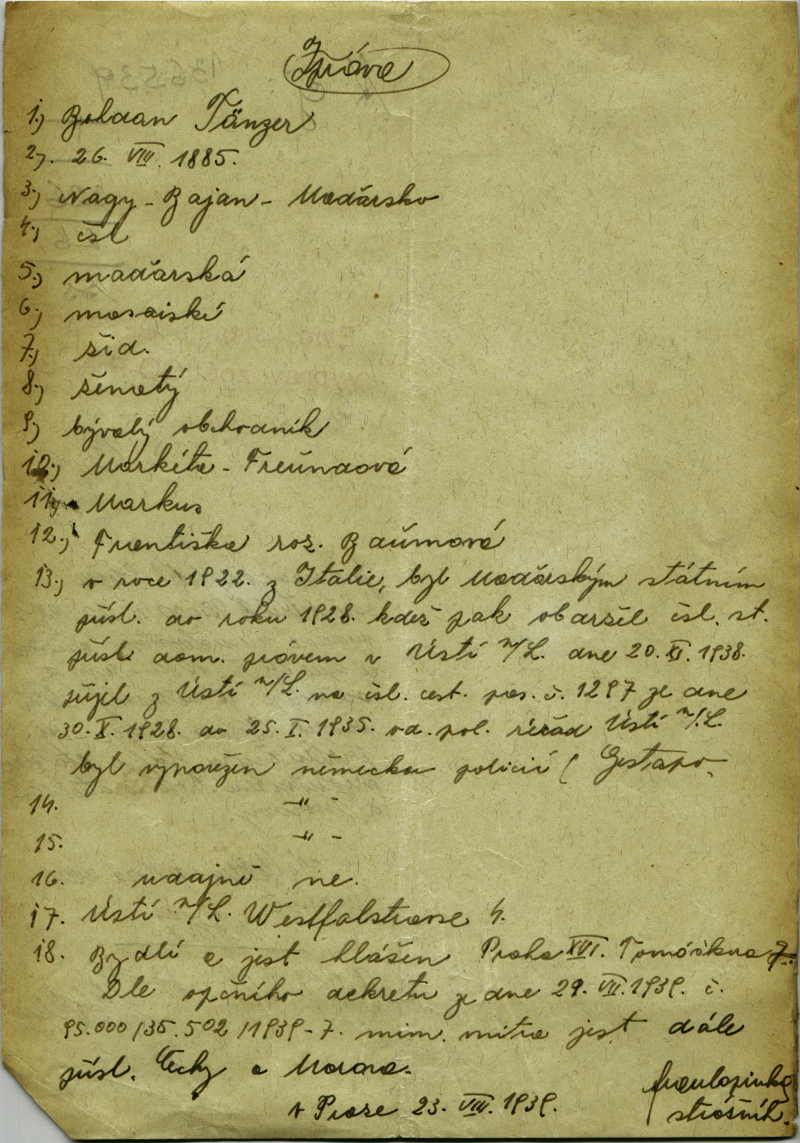 Zpráva
1.) Bohdan Tänzer
2.) 26. VIII. 1885.
3.) Nagy - Bajan - Maďarsko
4.) čsl
5.) maďarská
6.) mosaiské
7.) žid.
8.) ženatý
9.) bývalý obchodník
10.) Markéta - Freundová
11.) Markus
12.) Františka roz. Baümová
13.) v roce 1922. z Italie, byl Maďarským státním
přísl. do roku 1928. kdež pak obdržel čsl. st.
přísl. dom. právem v Ústí n/L. dne 20. XI. 1938.
z Ústí n/L. na čsl. cest. pas. č. 1297 ze dne
30. X. 1928. do 25. I. 1935. od. pol. Ústí n/L.
byl vypovězen německou policií ( Gestapo.
14. -"-
15. -"-
16. udajně ne.
17. Ústí n/L. Westfalstrasse 4.
18. Bydlí a jest hlášen Praha XVI.
Dle opčního dekretu ze dne 29. VII. 1939. č.
95.000/35.502/1939-7. min. vnitra jest dále
přísl. Čechy a Morava.
v Praze 23. VIII. 1939.
strážník.